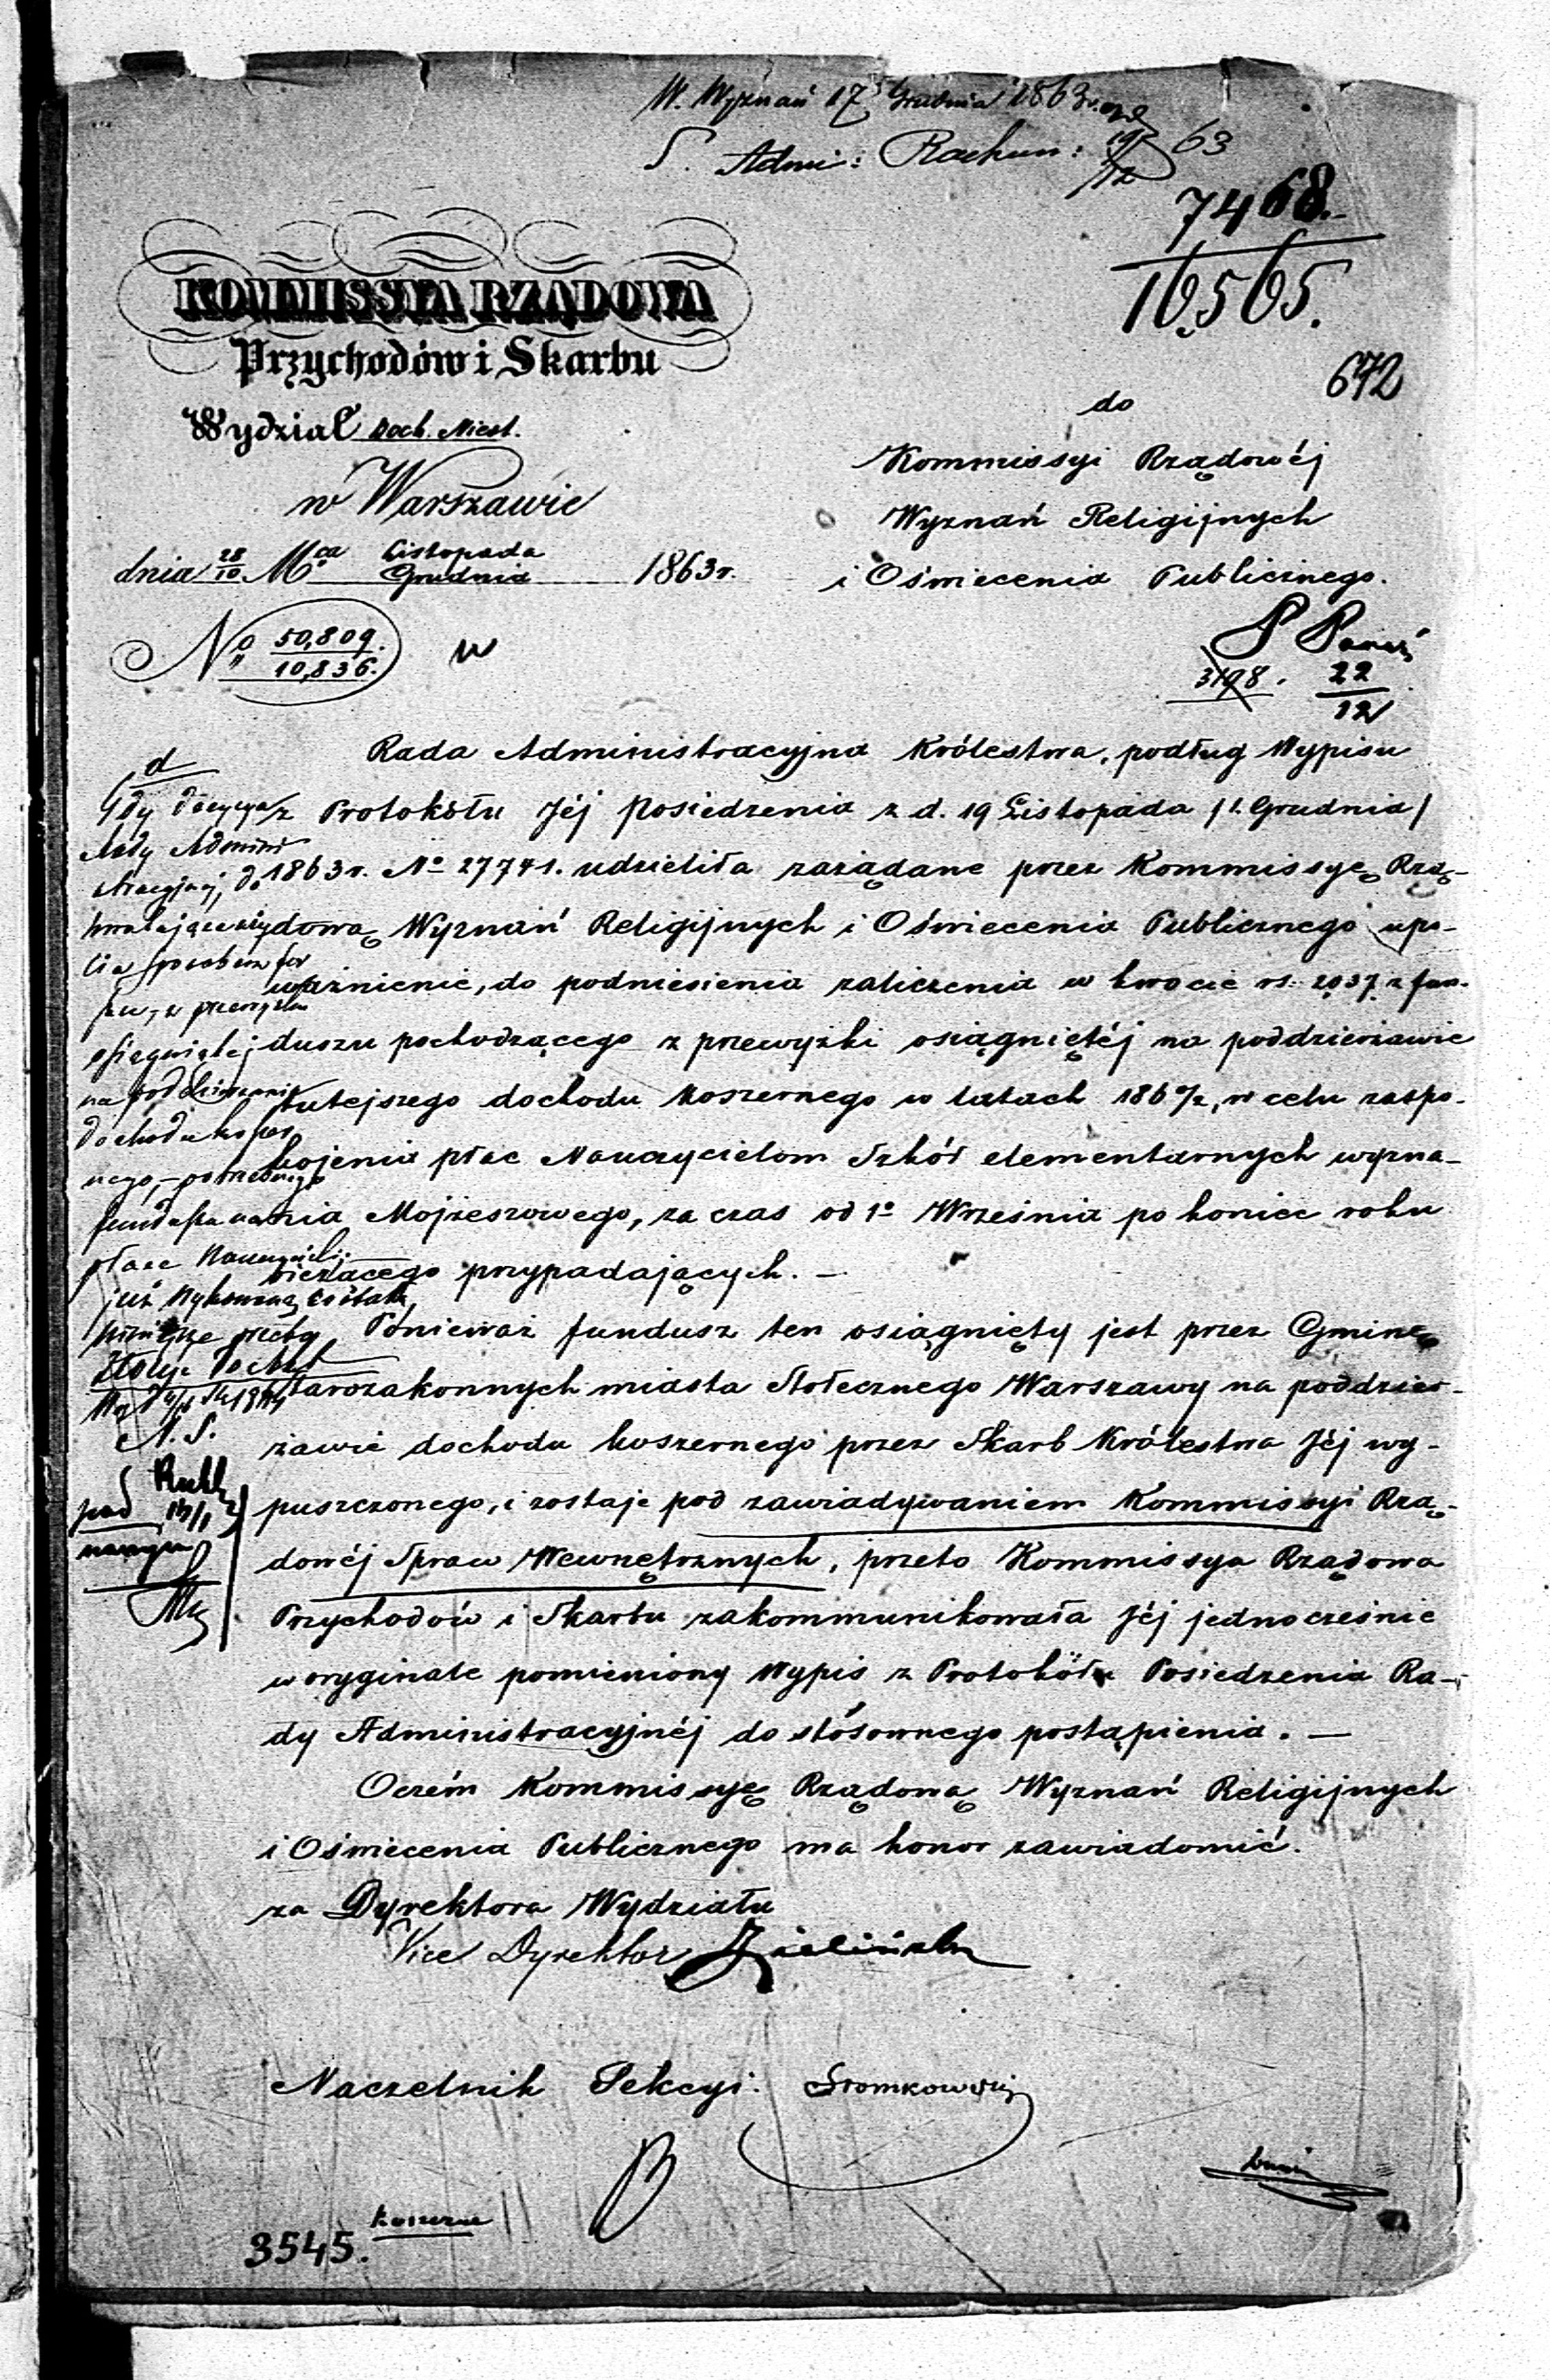 W. Wyznań 17 Grudnia 1863 r.
S. Admi: Rachun: 19/12 63
7468.
16,565.
672
KOMMISSYA RZĄDOWA
Przychodów i Skarbu
Wydział Doch. Niest.
w Warszawie
dnia 28/10 Mca Listopada/Grudnia 1863 r.
No 50,809./10,836.
do
Kommissyi Rządowéj
Wyznań Religijnych
i Oświecenia Publicznego.
3198. 22/12
Rada Administracyjna Królestwa, podług Wypisu
z Protokółu Jéj Posiedzenia z d. 19 Listopada /1. Grudnia/
1863 r. No 27741. udzieliła zażądane przez Kommissyę Rzą-
dową Wyznań Religijnych i Oświecenia Publicznego upo-
ważnienie, do podniesienia zaliczenia w kwocie rs. 2037. z fun-
duszu pochodzącego z przewyżki osiągniętéj na poddzierżawie
tutejszego dochodu koszernego w latach 1860/2, w celu zaspo-
kojenia płac Nauczycielom Szkół elementarnych wyzna-
nia Mojżeszowego, za czas od 1o Września po koniec roku
bieżącego przypadających. —
Ponieważ fundusz ten osiągnięty jest przez Gminę
Starozakonnych miasta Stołecznego Warszawy na poddzier-
żawie dochodu koszernego przez Skarb Królestwa Jéj wy-
puszczonego, i zostaje pod zawiadywaniem Kommissyi Rzą-
dowéj Spraw Wewnętrznych, przeto Kommissya Rządowa
Przychodów i Skarbu zakommunikowała Jéj jednocześnie
w oryginale pomieniony Wypis z Protokółu Posiedzenia Ra-
dy Administracyjnéj do stósownego postąpienia. —
Oczém Kommissyę Rządową Wyznań Religijnych
i Oświecenia Publicznego ma honor zawiadomić.
za Dyrektora Wydziału
Vice Dyrektor Zieliński
Naczelnik Sekcyi. Słomkowski
koszerne
3545.
Gdy decyzya
Rady Admini
stracyjnej,
osiągniętej
na poddzierżawie
dochodu koszer
nego, — potrzebnego
funduszu na
płace Nauczycieli;
już wykonaną została,
N. S.